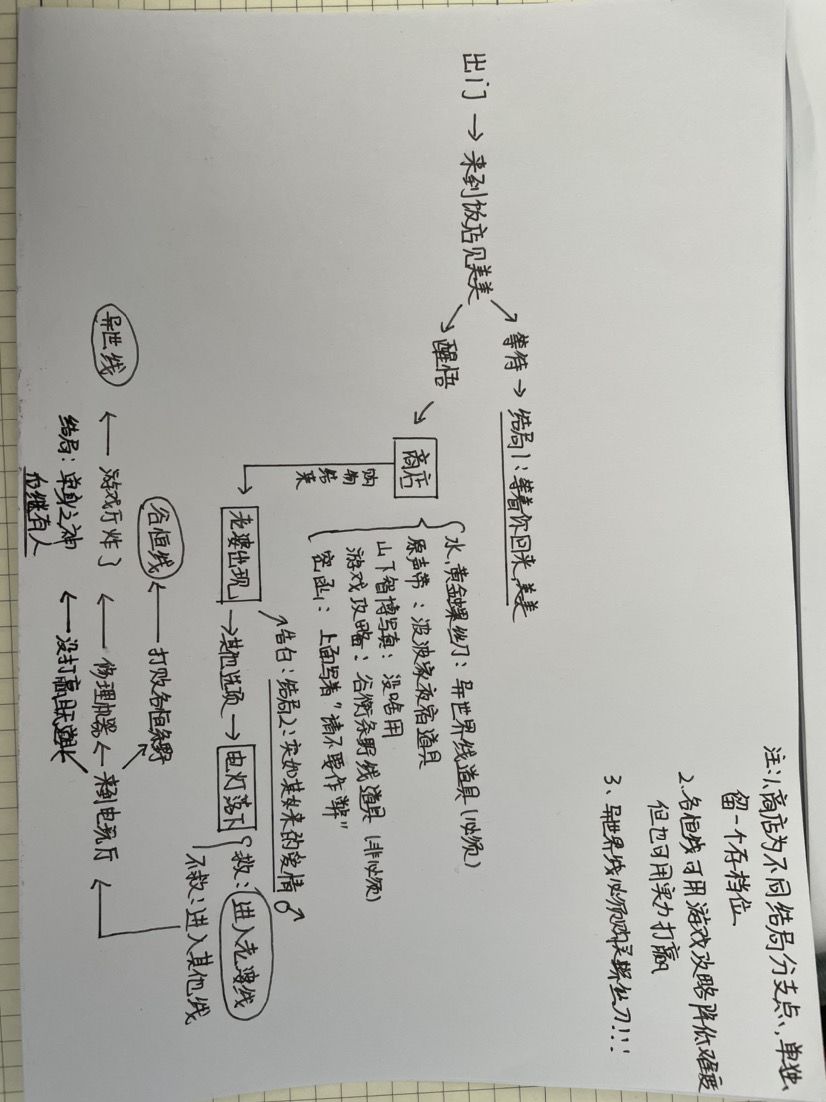 注:1、商店为不同结局分支点,单独
留一个存档位
2、谷恒线可用游戏攻略降低难度
但也可用实力打赢
3、异世界线必须购买螺丝刀!!!
出门 → 来到饭店见美美
等待 → 结局1:等着你回来,美美
醒悟
商店
水,黄金螺丝刀:异世界线道具(必须)
原声带:波波家夜宿道具
山下智博写真:没啥用
游戏攻略:谷衡条野线道具(非必须)
密函:上面写着“请不要作弊”
购物结束
老婆出现
告白:结局2:突如其来的爱情♂
→ 其他选项 → 电灯落下
救:进入老婆线
不救:进入其他线
来到电玩厅
打败谷恒条野
谷恒线
修理机器
游戏厅炸了
异世线
没打赢
结局:单身之神
后继有人